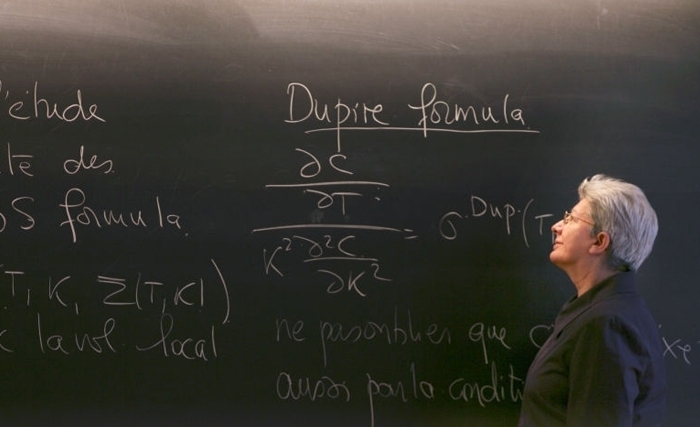 l'étude
té des
S formula.
T, K, Σ(T,K))
la vol local
Dupire formula
∂C
∂T
K² ∂²C = σ Dup.(T,
∂K²
ne pas oublier que
aussi par la conditi
ixe